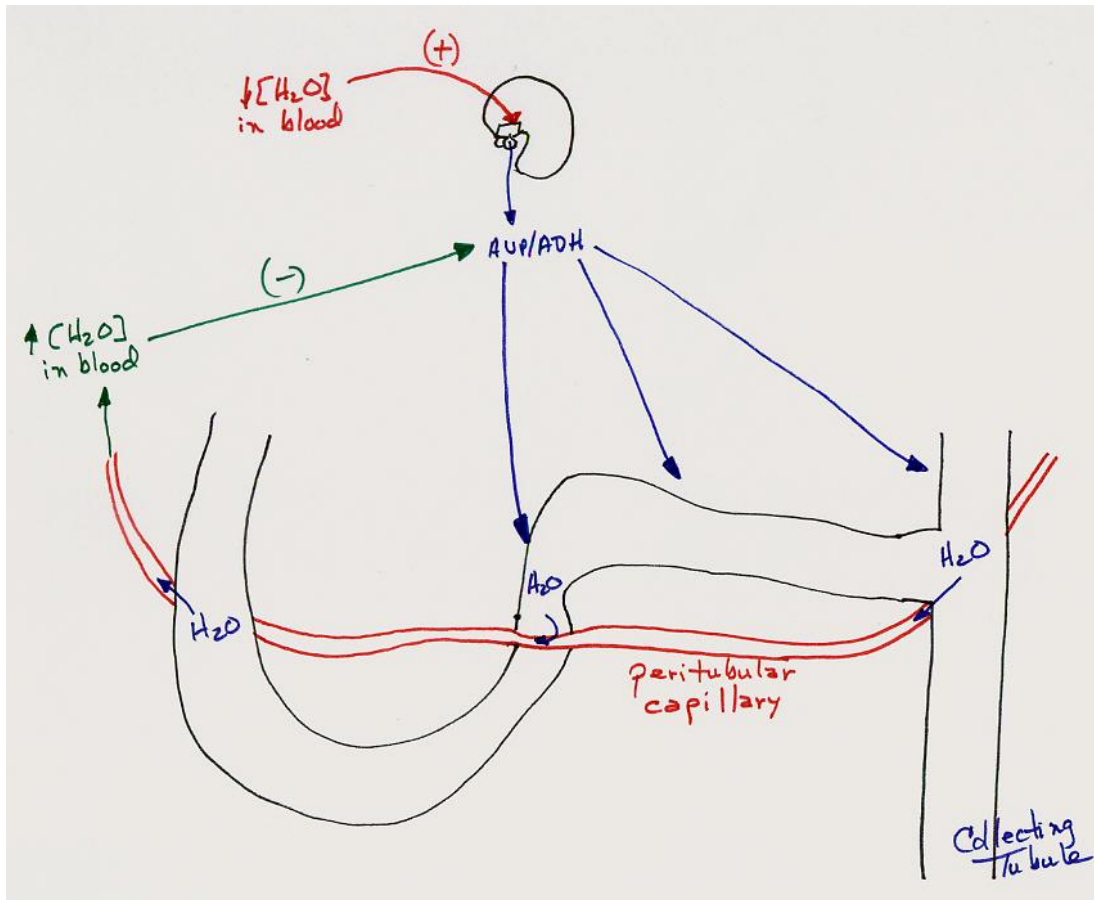 (+)
↓[H₂O]
in blood
AVP/ADH
(-)
↑ [H₂O]
in blood
H₂O
H₂O
H₂O
peritubular
capillary
Collecting
Tubule